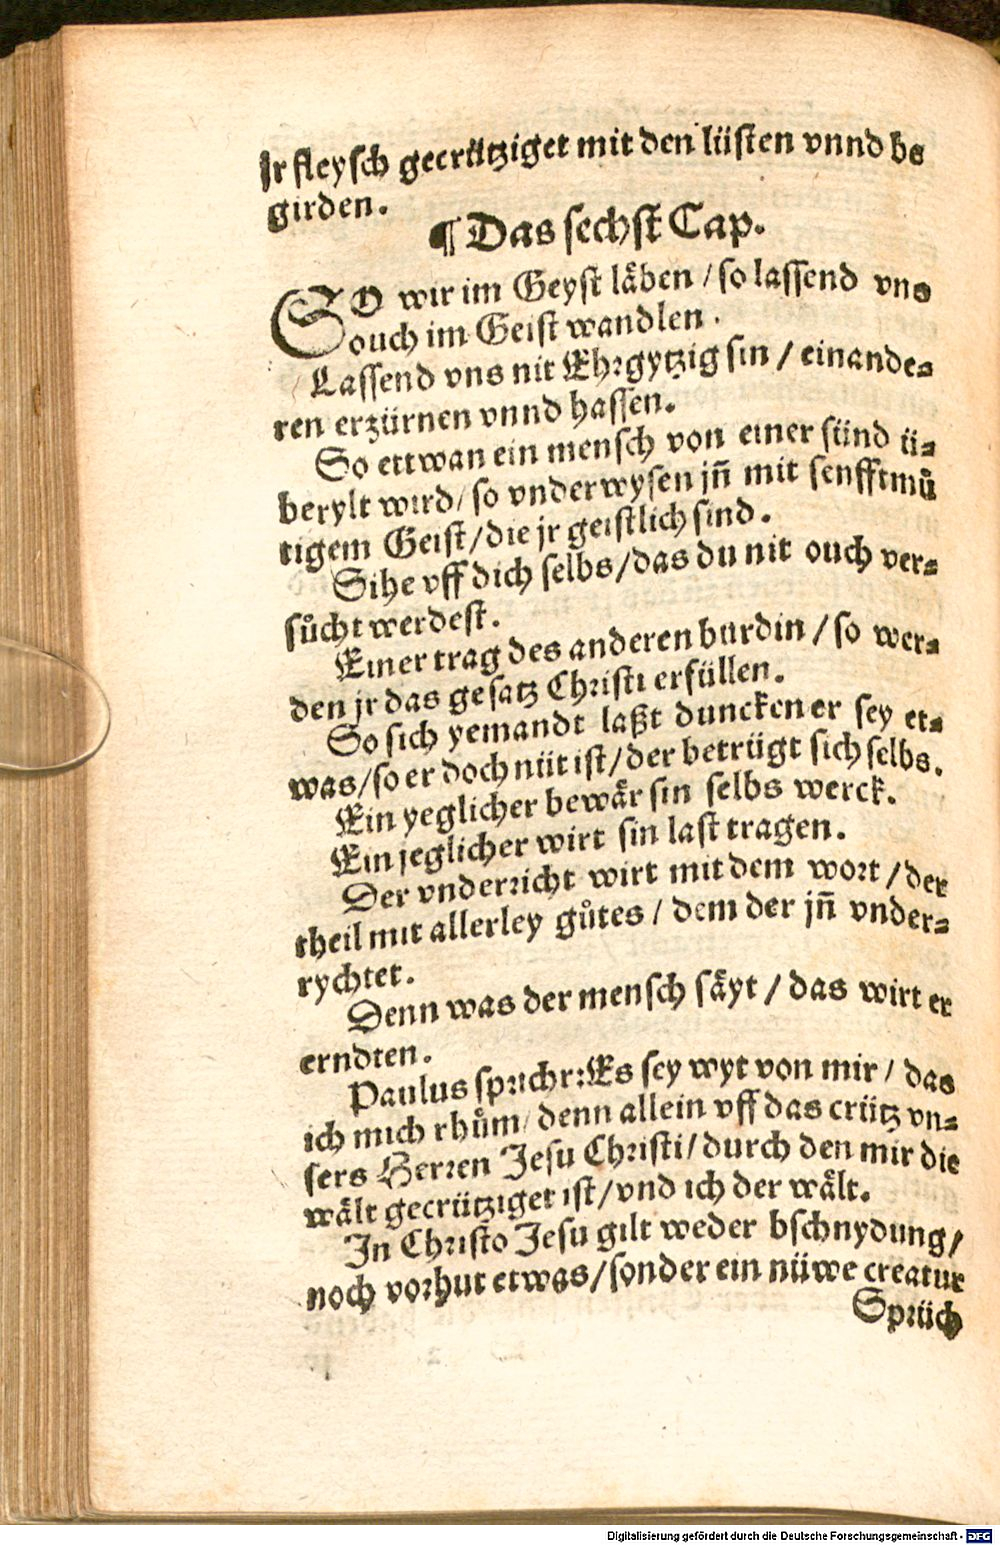 Jr fleysch gecrütziget mit den lüsten vnnd be
girden.
¶ Das sechst Cap.
SO wir im Geyst läben / so lassend vns
ouch im Geist wandlen.
Lassend vns nit Ehrgytzig sin / einande⸗
ren erzürnen vnnd hassen.
So ettwan ein mensch von einer sünd ü⸗
berylt wird / so vnderwysen jn̄ mit senfftmuͦ
tigem Geist / die jr geistlich sind.
Sihe vff dich selbs / das du nit ouch ver⸗
suͦcht werdest.
Einer trag des anderen burdin / so wer⸗
den jr das gesatz Christi erfüllen.
So sich yemandt laßt duncken er sey et⸗
was / so er doch nüt ist / der betrügt sich selbs.
Ein yeglicher bewär sin selbs werck.
Ein jeglicher wirt sin last tragen.
Der vnderricht wirt mit dem wort / der
theil mit allerley guͦtes / dem der jn̄ vnder⸗
rychtet.
Denn was der mensch säyt / das wirt er
erndten.
Paulus spricht: Es sey wyt von mir / das
ich mich rhuͦm / denn allein vff das crütz vn⸗
sers Herren Jesu Christi / durch den mir die
wält gecrütziget ist / vnd ich der wält.
In Christo Jesu gilt weder bschnydung /
noch vorhut etwas / sonder ein nüwe creatur
Sprüch
Digitalisierung gefördert durch die Deutsche Forschungsgemeinschaft - DFG